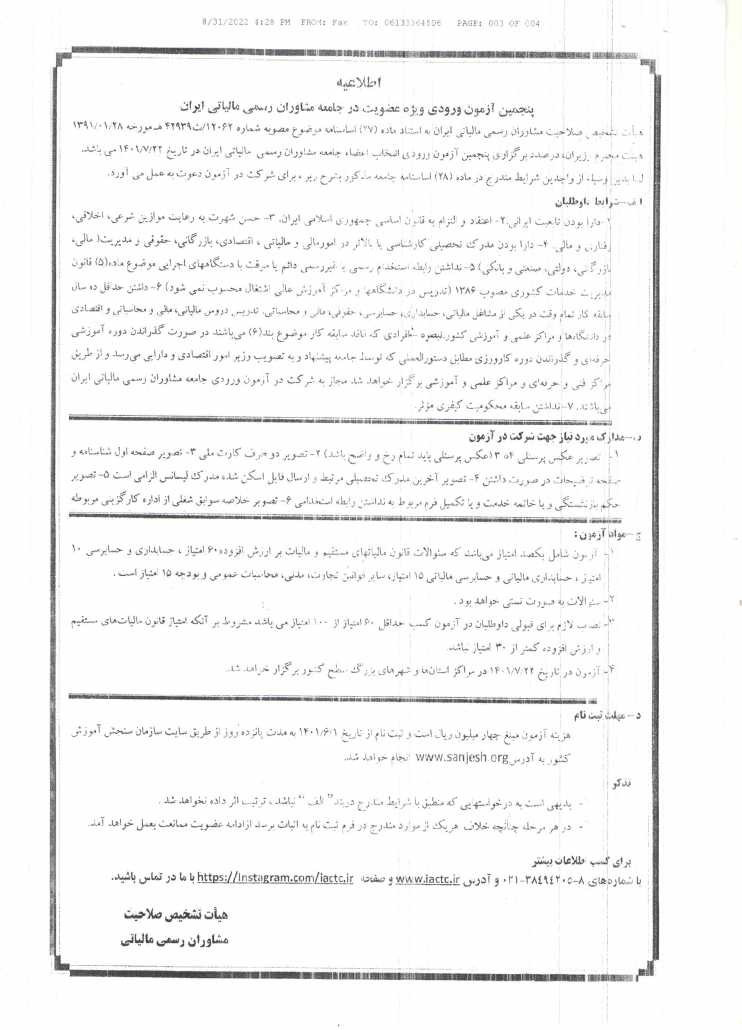 8/31/2022 4:28 PM FROM: Fax TO: 06133364506 PAGE: 003 OF 004
اطلاعیه
پنجمین آزمون ورودی ویژه عضویت در جامعه مشاوران رسمی مالیاتی ایران
هیأت تشخیص صلاحیت مشاوران رسمی مالیاتی ایران به استناد ماده (۲۷) اساسنامه موضوع مصوبه شماره ۱۲۰۶۲/ت۴۲۹۳۹هـ مورخه ۱۳۹۱/۰۱/۲۸
هیئت محترم وزیران، درصدد برگزاری پنجمین آزمون ورودی انتخاب اعضاء جامعه مشاوران رسمی مالیاتی ایران در تاریخ ۱۴۰۱/۷/۲۲ می باشد.
لذا بدین وسیله از واجدین شرایط مندرج در ماده (۲۸) اساسنامه جامعه مذکور بشرح زیر، برای شرکت در آزمون دعوت به عمل می آورد.
الف-شرایط داوطلبان
۱-دارا بودن تابعیت ایرانی.۲- اعتقاد و التزام به قانون اساسی جمهوری اسلامی ایران. ۳- حسن شهرت به رعایت موازین شرعی، اخلاقی،
رفتاری و مالی. ۴- دارا بودن مدرک تحصیلی کارشناسی یا بالاتر در امورمالی و مالیاتی ، اقتصادی، بازرگانی، حقوقی و مدیریت( مالی،
بازرگانی، دولتی، صنعتی و بانکی) ۵-نداشتن رابطه استخدام رسمی یا غیررسمی دائم یا موقت با دستگاههای اجرایی موضوع ماده(۵) قانون
مدیریت خدمات کشوری مصوب ۱۳۸۶ (تدریس در دانشگاهها و مراکز آموزش عالی اشتغال محسوب نمی شود) ۶-داشتن حداقل ده سال
سابقه کار تمام وقت در یکی از مشاغل مالیاتی، حسابداری، حسابرسی، حقوقی، مالی و محاسباتی، تدریس دروس مالیاتی، مالی و محاسباتی و اقتصادی
در دانشگاهها و مراکز علمی و آموزشی کشور.تبصره :افرادی که فاقد سابقه کار موضوع بند(۶) می‌باشند در صورت گذراندن دوره آموزشی
حرفه‌ای و گذراندن دوره کارورزی مطابق دستورالعملی که توسط جامعه پیشنهاد و به تصویب وزیر امور اقتصادی و دارایی می‌رسد و از طریق
مراکز فنی و حرفه‌ای و مراکز علمی و آموزشی برگزار خواهد شد مجاز به شرکت در آزمون ورودی جامعه مشاوران رسمی مالیاتی ایران
می‌باشند. ۷-نداشتن سابقه محکومیت کیفری مؤثر.
ب-مدارک مورد نیاز جهت شرکت در آزمون
۱- تصویر عکس پرسنلی ۴×۳ (عکس پرسنلی باید تمام رخ و واضح باشد) ۲-تصویر دو طرف کارت ملی ۳- تصویر صفحه اول شناسنامه و
صفحه توضیحات در صورت داشتن ۴- تصویر آخرین مدرک تحصیلی مرتبط و ارسال فایل اسکن شده مدرک لیسانس الزامی است ۵- تصویر
حکم بازنشستگی و یا خاتمه خدمت و یا تکمیل فرم مربوط به نداشتن رابطه استخدامی ۶- تصویر خلاصه سوابق شغلی از اداره کارگزینی مربوطه
ج-مواد آزمون :
۱- آزمون شامل یکصد امتیاز می‌باشد که سئوالات قانون مالیاتهای مستقیم و مالیات بر ارزش افزوده۶۰ امتیاز ، حسابداری و حسابرسی ۱۰
امتیاز ، حسابداری مالیاتی و حسابرسی مالیاتی ۱۵ امتیاز، سایر قوانین تجارت، مدنی، محاسبات عمومی و بودجه ۱۵ امتیاز است .
۲- سئوالات به صورت تستی خواهد بود .
۳- نصاب لازم برای قبولی داوطلبان در آزمون کسب حداقل ۶۰ امتیاز از ۱۰۰ امتیاز می باشد مشروط بر آنکه امتیاز قانون مالیات‌های مستقیم
و ارزش افزوده کمتر از ۳۰ امتیاز نباشد.
۴- آزمون در تاریخ ۱۴۰۱/۷/۲۲ در مراکز استان‌ها و شهرهای بزرگ سطح کشور برگزار خواهد شد.
د- مهلت ثبت نام
هزینه آزمون مبلغ چهار میلیون ریال است و ثبت نام از تاریخ ۱۴۰۱/۶/۱ به مدت پانزده روز از طریق سایت سازمان سنجش آموزش
کشور به آدرس www.sanjesh.org انجام خواهد شد.
تذکر
- بدیهی است به درخواستهایی که منطبق با شرایط مندرج دربند "الف" نباشد ، ترتیب اثر داده نخواهد شد .
- در هر مرحله چنانچه خلاف هریک از موارد مندرج در فرم ثبت نام به اثبات برسد ازادامه عضویت ممانعت بعمل خواهد آمد.
برای کسب اطلاعات بیشتر
با شماره‌های ۸-۰۲۱-۳۸۴۹۴۲۰۵ و آدرس www.iactc.ir و صفحه https://instagram.com/iactc.ir با ما در تماس باشید.
هیأت تشخیص صلاحیت
مشاوران رسمی مالیاتی